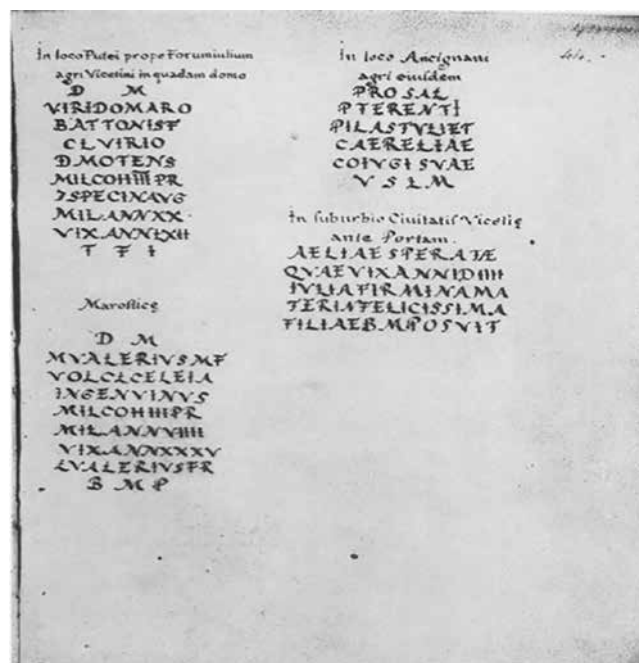 In loco Putei prope Forumiulium
agri Vicetini in quadam domo
D M
VIRIDOMARO
BATTONIS F
CLVIRIO
D MOTENS
MIL COH IIII PR
7 SPECIN AVG
MIL ANN XX
VIX ANN LXII
T F I
Marosticę
D M
M VALERIVS M F
VOLCLCELEIA
INGENVINVS
MIL COH IIII PR
MIL ANN VIIII
VIX ANN XXXV
L VALERIVS FR
B M P
In loco Ancignani
agri eiusdem
PRO SAL
P TERENTI
PILASTVLIET
CAERELIAE
COIVGI SVAE
V S L M
In suburbio Ciuitatis Vicetię
ante Portam.
AELIAE SPERATAE
QVAE VIX ANNI D IIII
IVLIA FIRMINA MA
TER INFELICISSIMA
FILIAE B M POSVIT